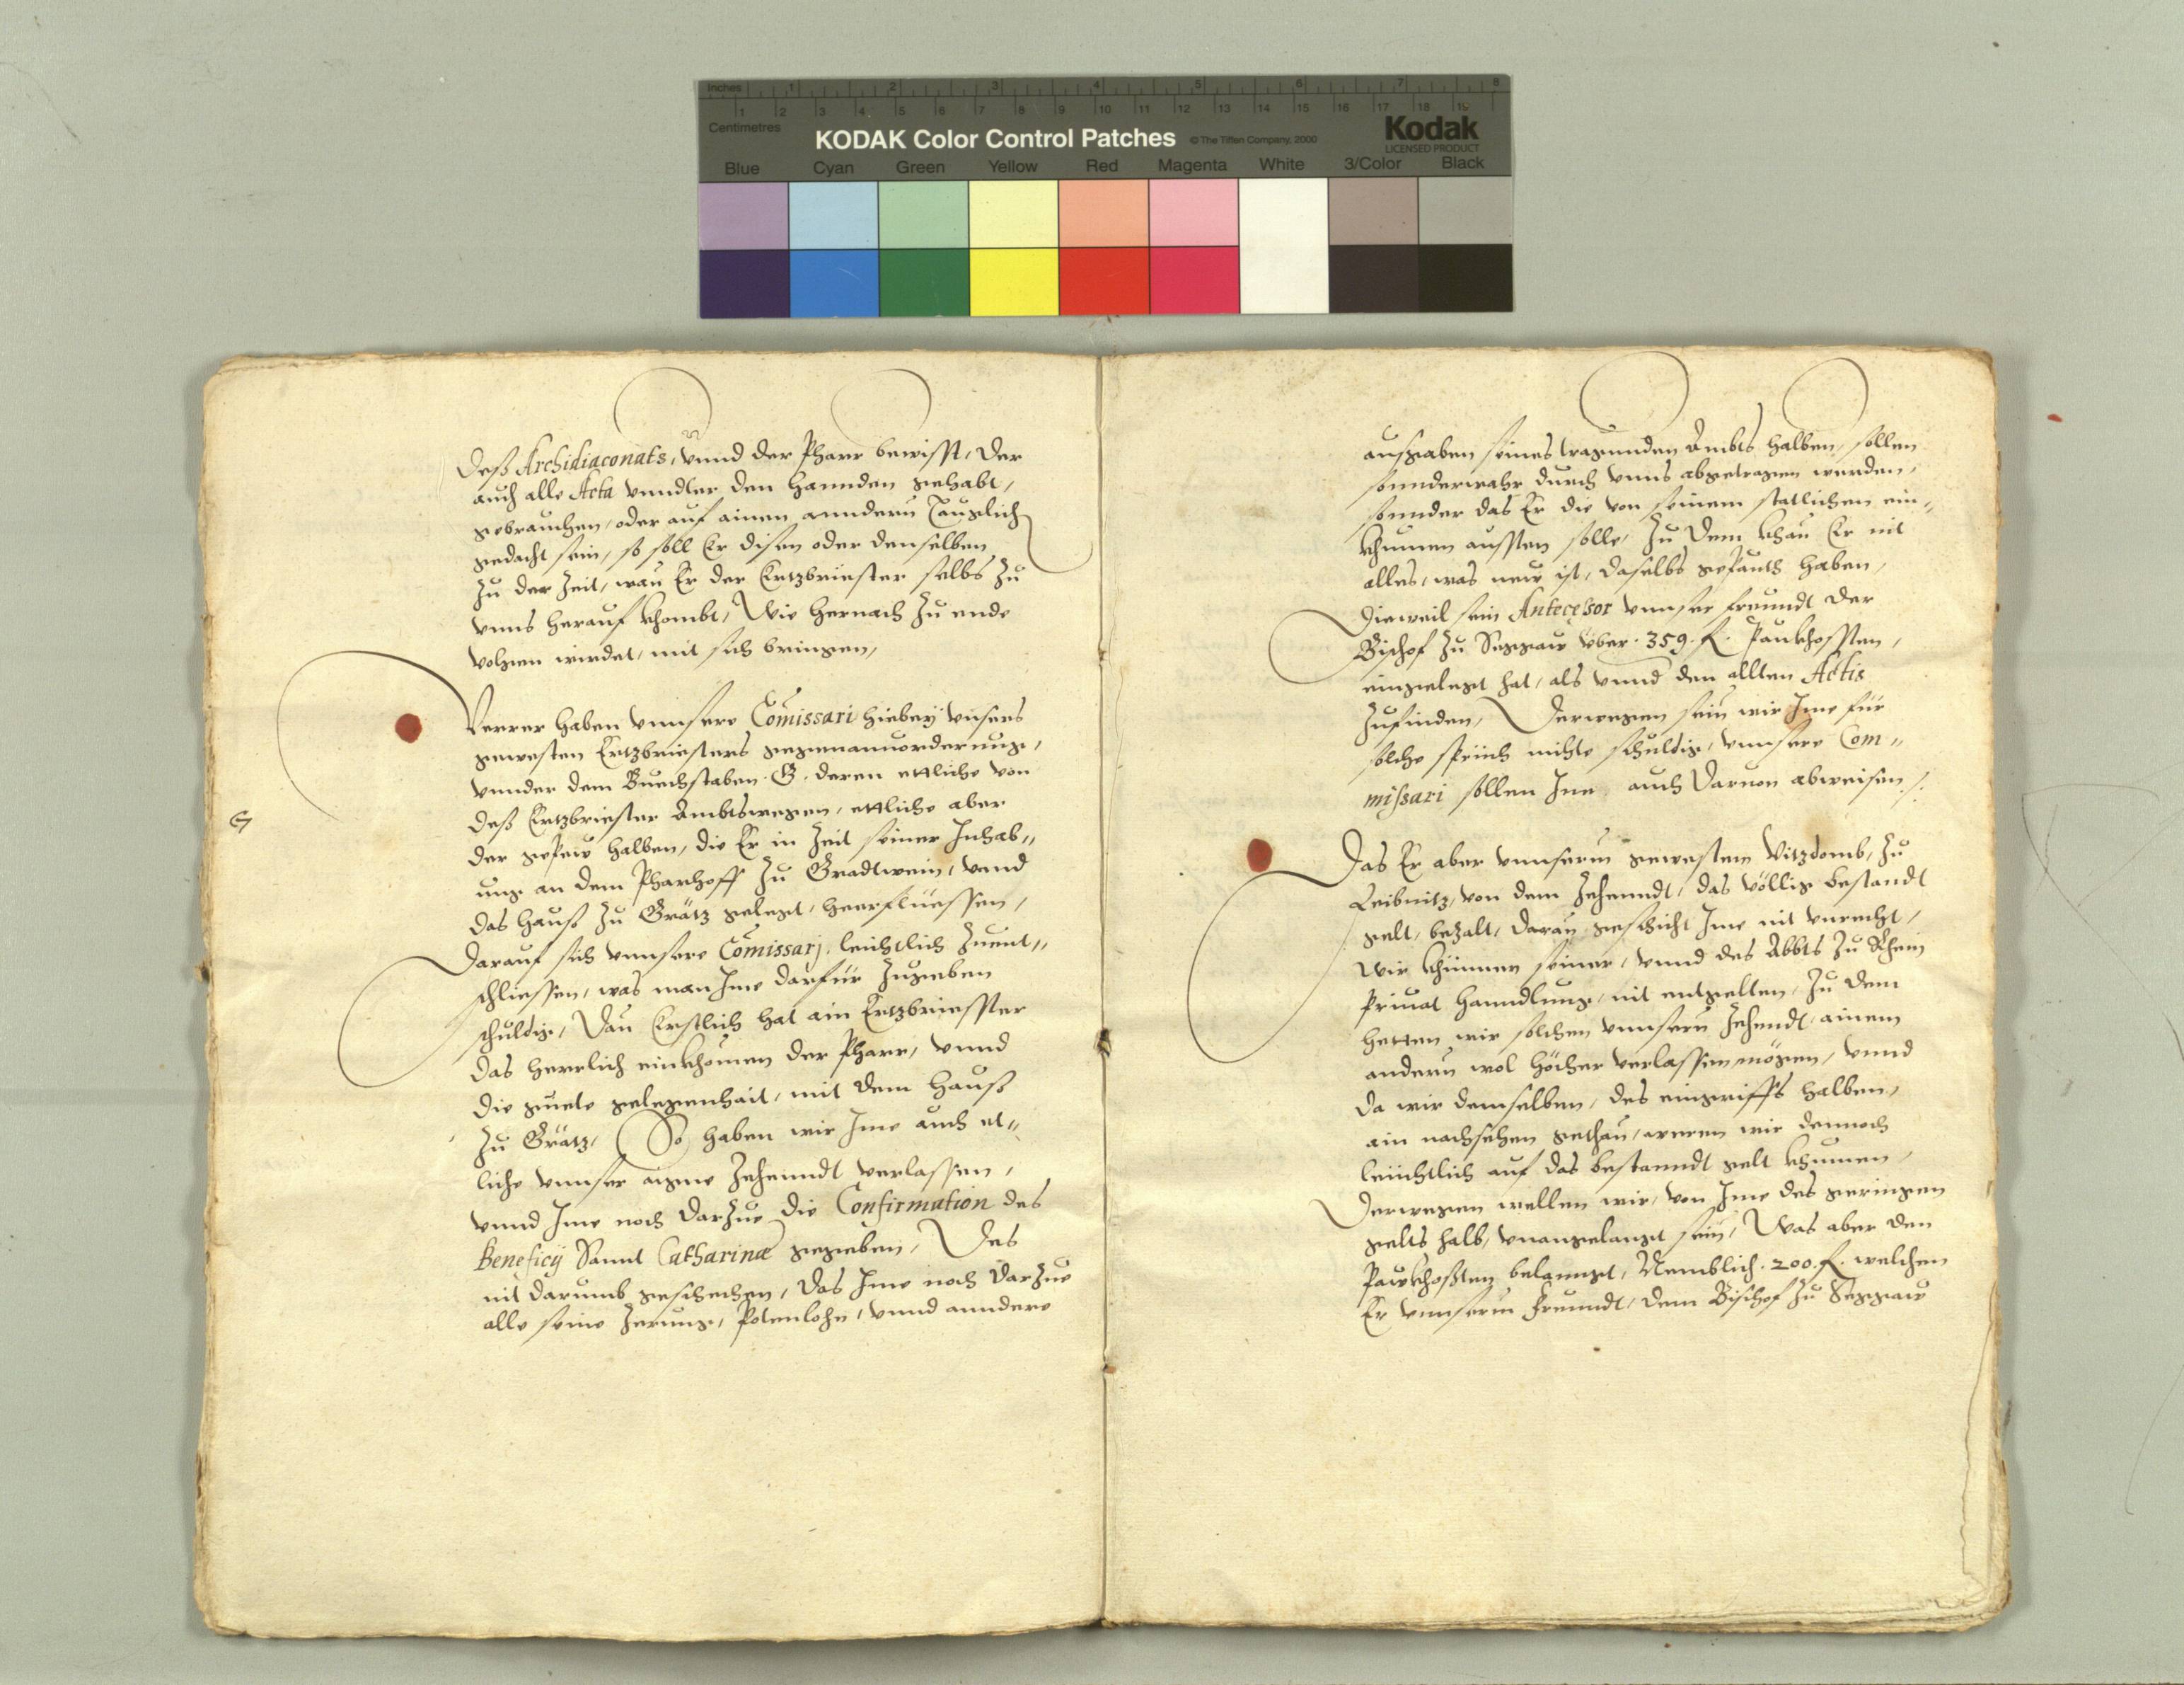 Inches 1 2 3 4 5 6 7 8
1 2 3 4 5 6 7 8 9 10 11 12 13 14 15 16 17 18 19
Centimetres
KODAK Color Control Patches © The Tiffen Company, 2000 Kodak
LICENSED PRODUCT
Blue Cyan Green Yellow Red Magenta White 3/Color Black
Deß Archidiaconats, vnnd der Pharr bewisst, der
auch alle Acta vnndter den hannden gehabt,
gebrauchen, oder auf ainen anndern Tauglich
gedacht sein, so soll Er disen oder denselben
zu der Zeit, wan Er der Ertzbriester selbs zu
vnns herauf khombt, Wie hernach zu ende
volgen wirdet, mit sich bringen,
Verrer haben vnnsere Comissari hiebeÿ vnsers
gewesten Ertzbriesters gegenanuorderung,
vnnder dem Buechstaben .G. deren ettliche von
deß Ertzbriester Ambtswegen, ettliche aber
G
der gepew halben, die Er in Zeit seiner Inhab„
ung an dem Pharhoff zu Gradtwein, vnnd
das hauß zu Grätz gelegt, heerfliessen,
Darauf sich vnnsere Comissarj leichtlich zuent„
schliessen, was man Ime darfür zugeben
schuldig, Dan Erstlich hat ain Ertzbriesster
das herrlich einkhomen der Pharr, vnnd
die guete gelegenhait, mit dem hauß
zu Grätz, So haben wir Ime auch et„
liche vnnser aigne Zehenndt verlassen,
vnnd Ime noch darzue die Confirmation des
Beneficÿ Sannt Catharinæ gegeben, Des
nit darumb geschechen, das Ime noch darzue
alle seine Zerung, Potenlohn, vnnd anndere
ausgaben seines tragunden Ambts halben, sollen
sonnderwahr durch vnns abgetragen werden,
sonnder das Er die von seinem statlichen ein„
khumen aussten solle, Zu dem khan Er nit
alles, was new ist, daselbs gepauth haben,
Dieweil sein Anteceßor vnnser freundt der
Bischof zu Seggaw über .359. fl. Paukhossten,
eingelegt hat, als vnnd den allten Actis
zufinden, Derwegen sein wir Ime für
solche sprüch nichts schuldig, vnnsere Com„
mißari sollen Ine auch daruon abweisen ./.
Das Er aber vnnserm gewesten Vitzdomb, zu
Leibnitz, von dem Zehenndt, das völlig bestandt
gelt, bezalt, daran geschicht Ime nit vnrecht,
Wir khünnen seiner, vnnd des Abbts zu Rhein
Priuat hanndlung, nit entgelten, Zu dem
hetten wir solchen vnnsern Zehendt, ainem
andern wol höcher verlassen mögen, vnnd
da wir demselben, des eingriffs halben,
ain nachsehen gethan, weren wir dennoch
leichtlich auf das bestanndt gelt khumen,
Derwegen wellen wir, von Ime des geringen
gelts halb, vnangelangt sein, Was aber den
Pawkhosten belanngt, Nemblich .200. fl. welchen
Er vnnserm freundt, dem Bischof zu Seggaw